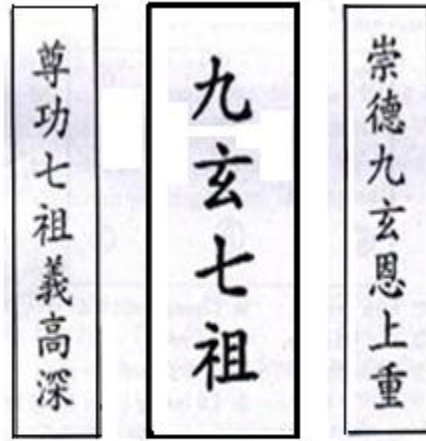 崇德九玄恩上重
九玄七祖
尊功七祖義高深